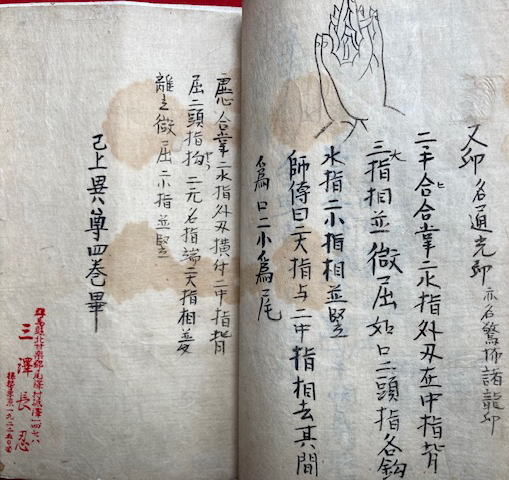 又印名通光印 亦名驚怖諸龍印
二手合合掌二水指外叉在中指背
三指相並微屈如口二頭指各鈎
水指二小指相並竪
師傳曰二大指与二中指相去其間
爲口二小爲尾
虚心合掌二水指外叉横付二中指背
屈二頭指拘二无名指端二大指相並
離之微屈二小指並竪
已上異尊四巻畢
群馬縣北甘楽郡尾
三澤長忍